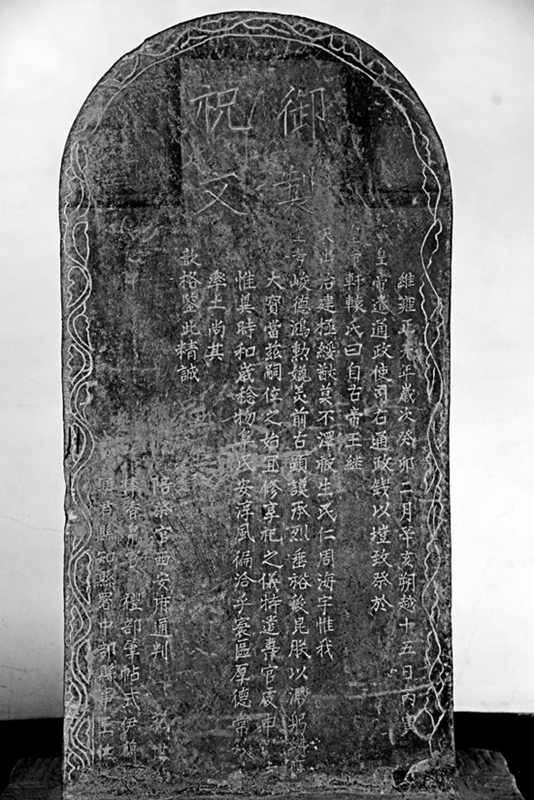 御製
祝文
維雍正元年歲次癸卯二月辛亥朔越十五日
皇帝遣通政使司右通政錢以塏致祭於
軒轅氏曰自古帝王繼
天出治建極綏猷莫不澤被生民仁周海宇惟我
峻德鴻勳媲美前古顯謨承烈垂裕後昆朕以渺躬
大寶當茲嗣位之始宜修享祀之儀特遣專官虔申
惟冀時和歲稔物阜民安淳風徧洽乎寰區厚德
率土尚其
歆格鑒此精誠
陪祭官西安府通判
禮部筆帖式伊
知縣署中部縣事王